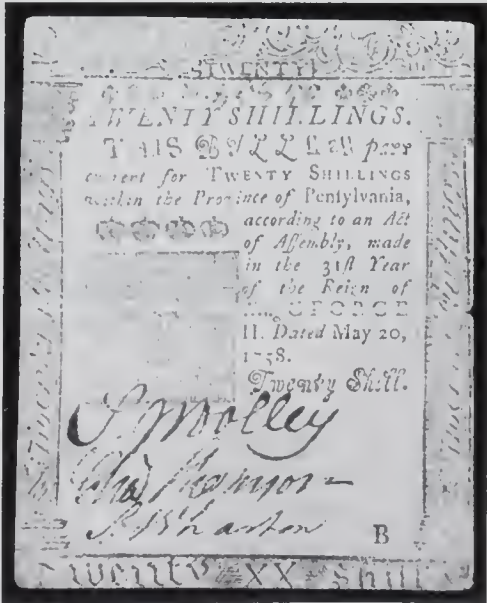 TWENTY
TWENTY SHILLINGS.
THIS BILL shall pass
current for TWENTY SHILLINGS
within the Province of Penſylvania,
according to an Act
of Aſſembly, made
in the 31ſt Year
of the Reign of
King GEORGE
II. Dated May 20,
1758.
Twenty Shill.
Wharton
B
Twenty XX Shill